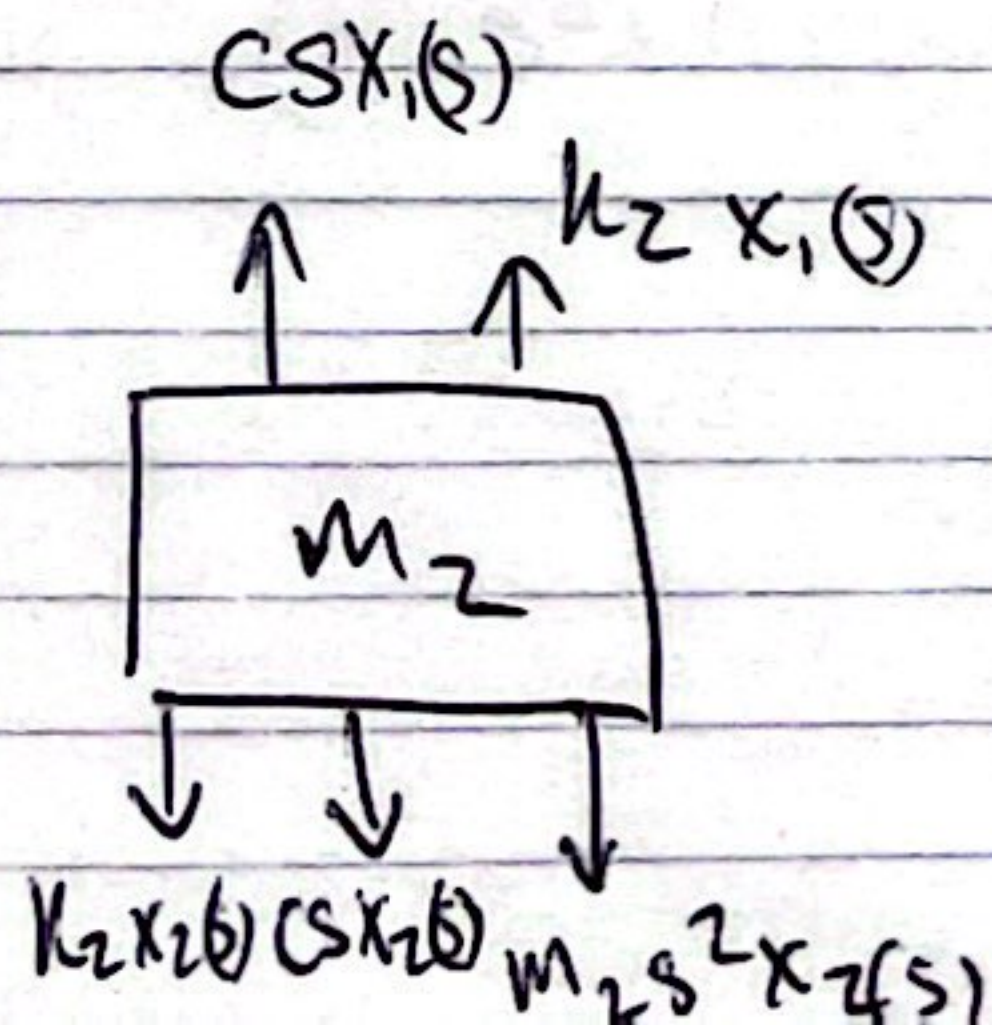 CSX₁(S)
k₂ X₁(S)
m₂
k₂X₂(S) CSX₂(S) m₂s²X₂(S)